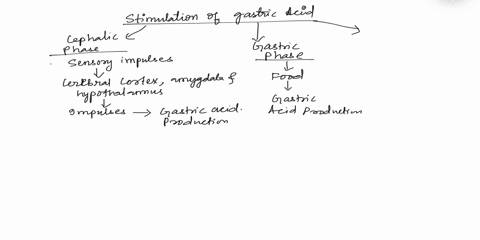 Stimulation of gastric Acid
Cephalic
Phase
Sensory impulses
Cerebral Cortex, amygdala &
hypothalamus
Impulses → Gastric acid.
Production
Gastric
Phase
Food
Gastric
Acid Production